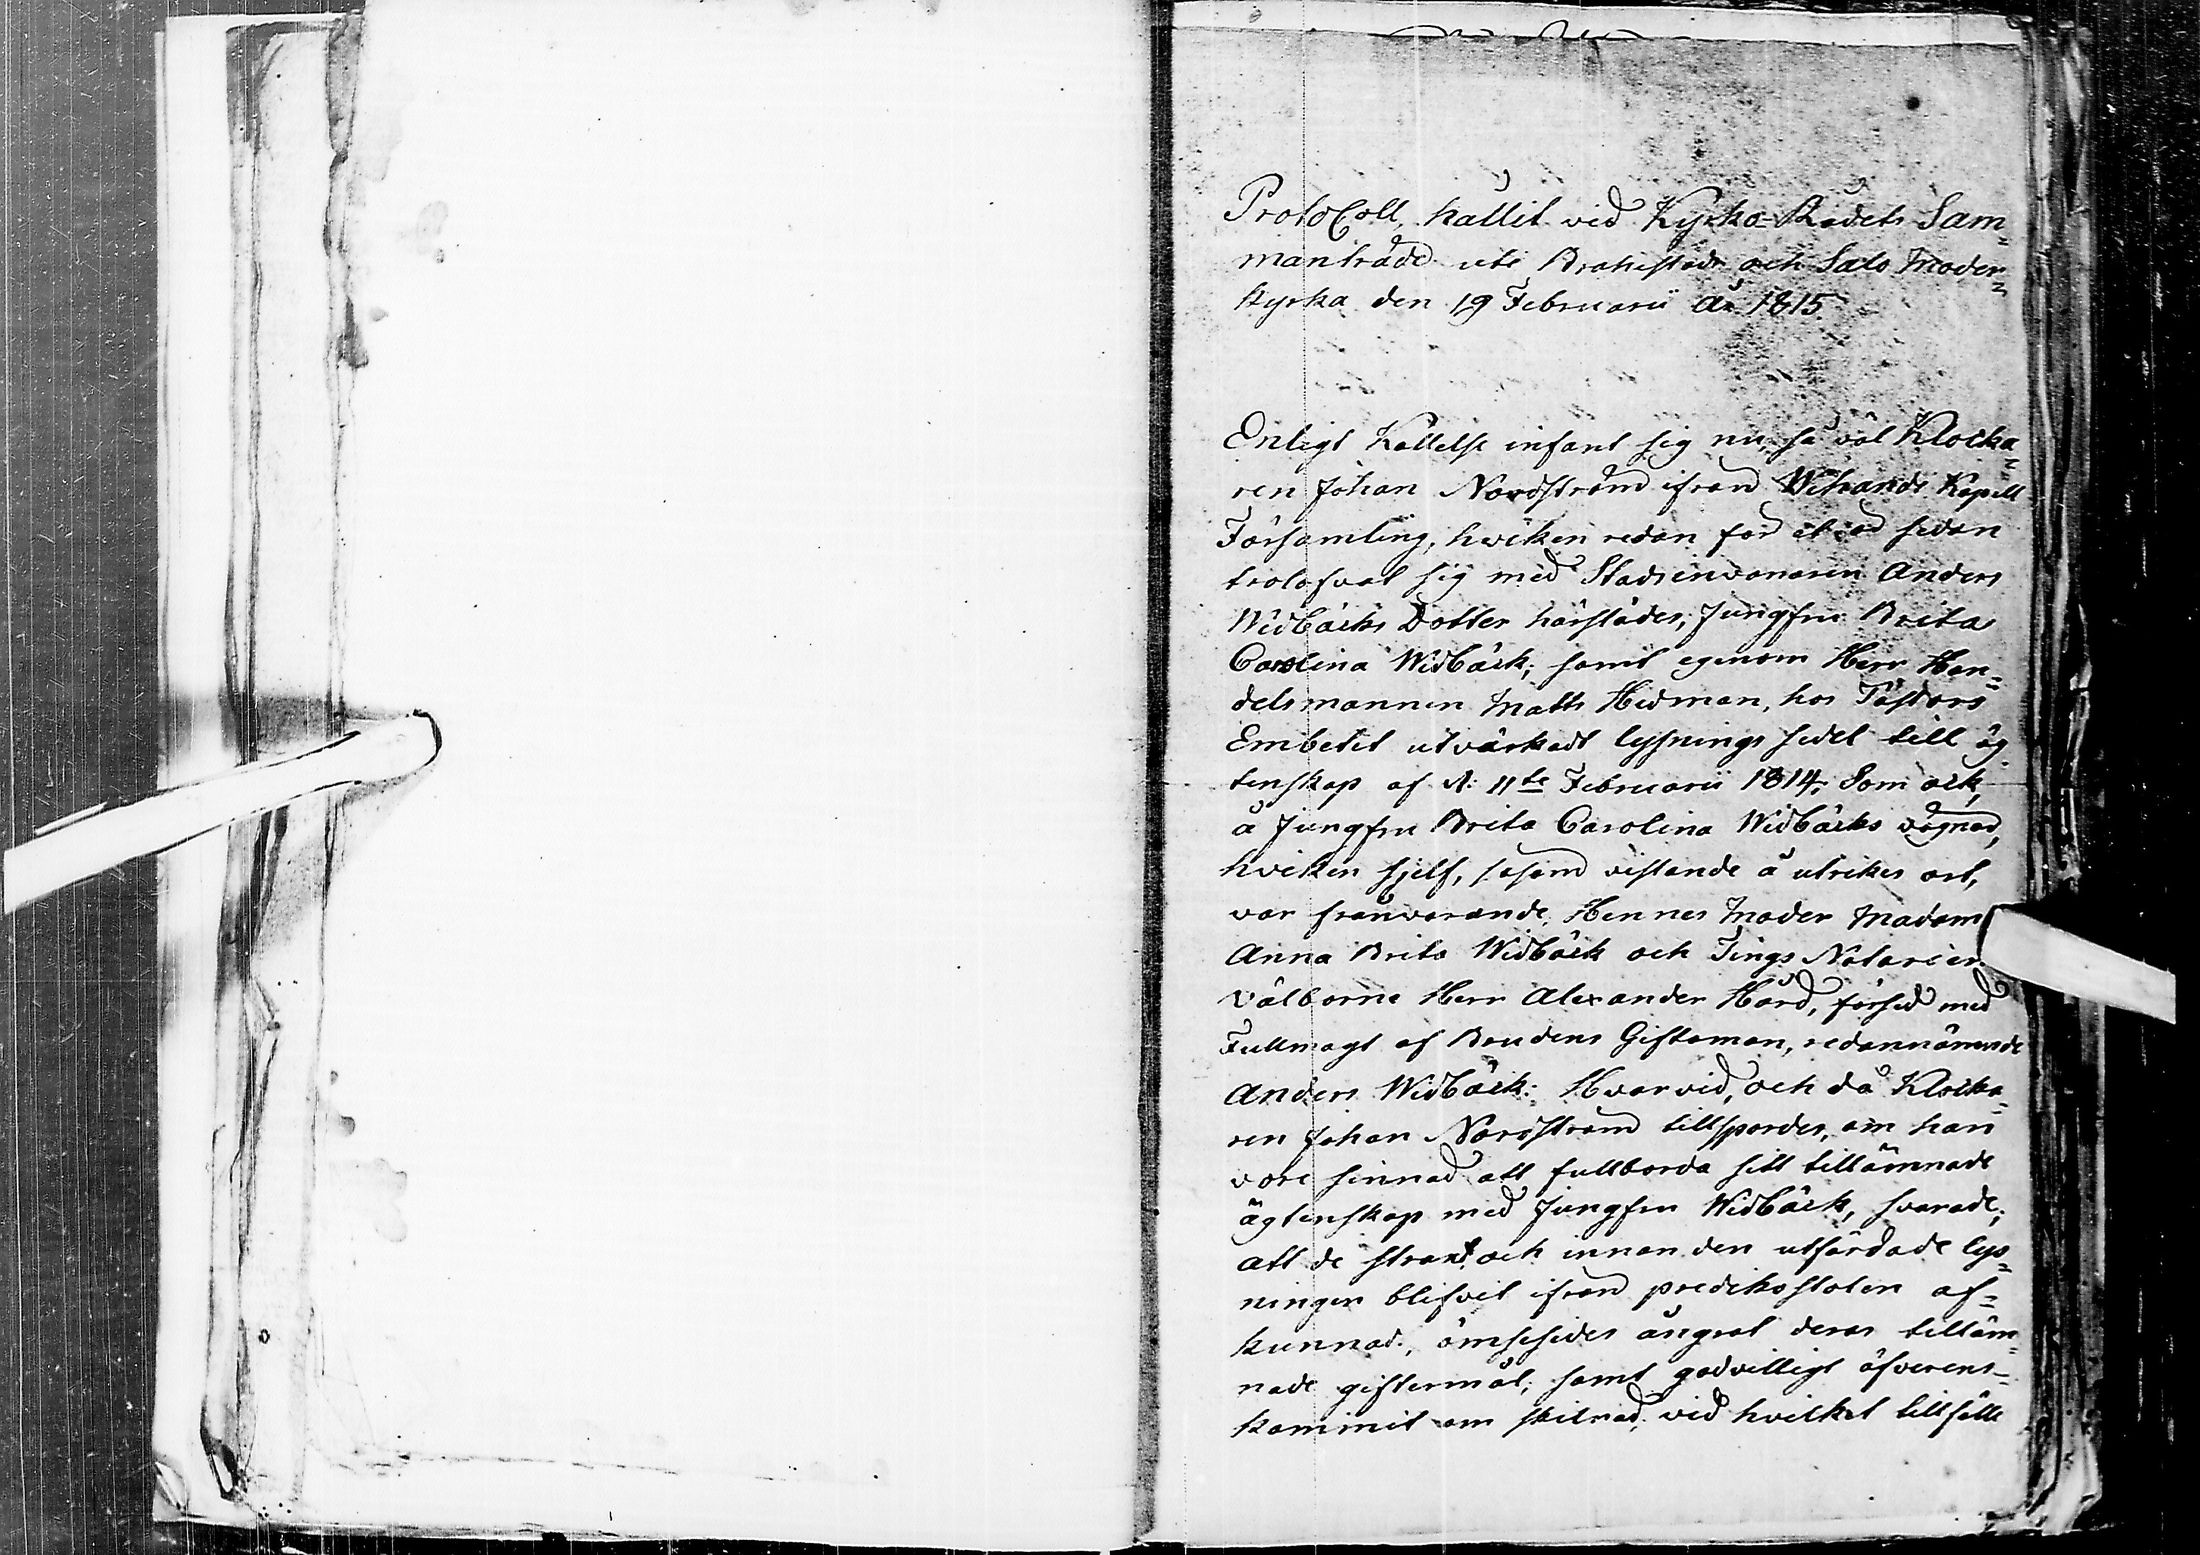 ProtoColl, hållit vid Kyrko-Rådets Sam=
manträde uti Brahestads och Salo Moder=
kyrka den 19 Februarii År 1815.
Enligt Kallelse infant sig nu, så väl Klocka=
ren Johan Nordström ifrån Wihands Kapell
Församling, hvilken redan för et år sedan
trolofvat sig med Stadsinvånaren Anders
Widbäcks Dotter härstädes, Jungfru Brita
Carolina Widbäck; samt egenom Herr Han=
delsmannen Matts Hedman, hos Pastors
Embetet utvärkadt lysnings sedel till äg
tenskap af d: 11te Februarii 1814; Som ock,
å Jungfru Brita Carolina Widbäcks vägnar,
hvilken sjelf, såsom vistande å utrikes ort,
var frånvarande, Hennes Moder Madam
Anna Brita Widbäck och Tings Notarien
Välborne Herr Alexander Hård, försed med
Fullmagt af Brudens Giftoman, redannämnde
Anders Widbäck: Hvarvid, och då Klocka=
ren Johan Nordström tillspordes, om han
vore sinnad att fullborda sitt tillämnade
ägtenskap med Jungfru Widbäck, svarade;
att de strant och innan den utfärdade lys=
ningen blifvit ifrån predikostolen af=
kunnad, ömsesides ångrat deras tilläm=
nade giftermål; samt godvilligt öfverens=
kommit om skilnad; vid hvilket tillfälle